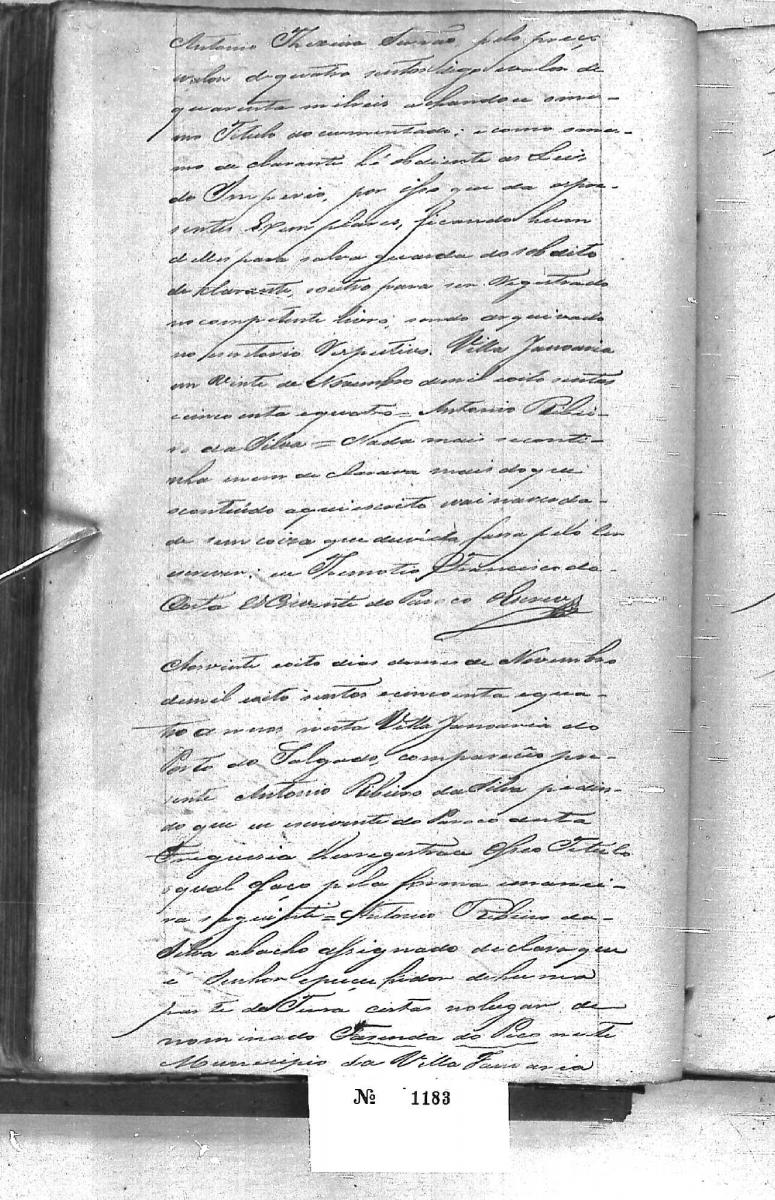 Antonio Theixeira Serrão pelo preço
valor de quatro sentos digo valor de
quarenta milreis achandose o mes-
mo Titulo documentado; e como o mes-
mo declarante hé obdiente as Leis
do Imperio, por isso que da os pre-
sentes Exemplares, ficando hum
delles para salva guarda do sobdito
declarante, e outro para ser Registrado
no competente livro; sendo arquivado
no escritorio Respectivo. Villa Januaria
em vinte de Novembro demil eoito sentos
ecinco enta equatro = Antonio Ribei-
ro da Silva = Nada mais seconti-
nha enem declarava mais doque
o contiúdo aqui escrito evai naverda-
de sem coiza que duvida fassa pelo ler
escrever; eu Themotio Francisco da
Costa Escrevente do Paroco Escrevy
Aosvinte eoito dias domes de Novembro
demil eoito sentos ecincoenta equa-
tro annos nesta Villa Januaria do
Porto do Salgado, compareceo pre-
sente Antonio Ribeiro da Silva pedin-
do que eu escrevente do Paroco desta
Freguesia lhe registrace o seo Titúlo
oqual faço pela forma emanei-
ra seguinte = Antonio Ribeiro da
Silva abacho assignado declara que
é Senhor epuçuhidor dehuma
parte de Terra citas nolugar de
nominado Fazenda do Pico neste
Municipio da Villa Januaria
Nº 1183